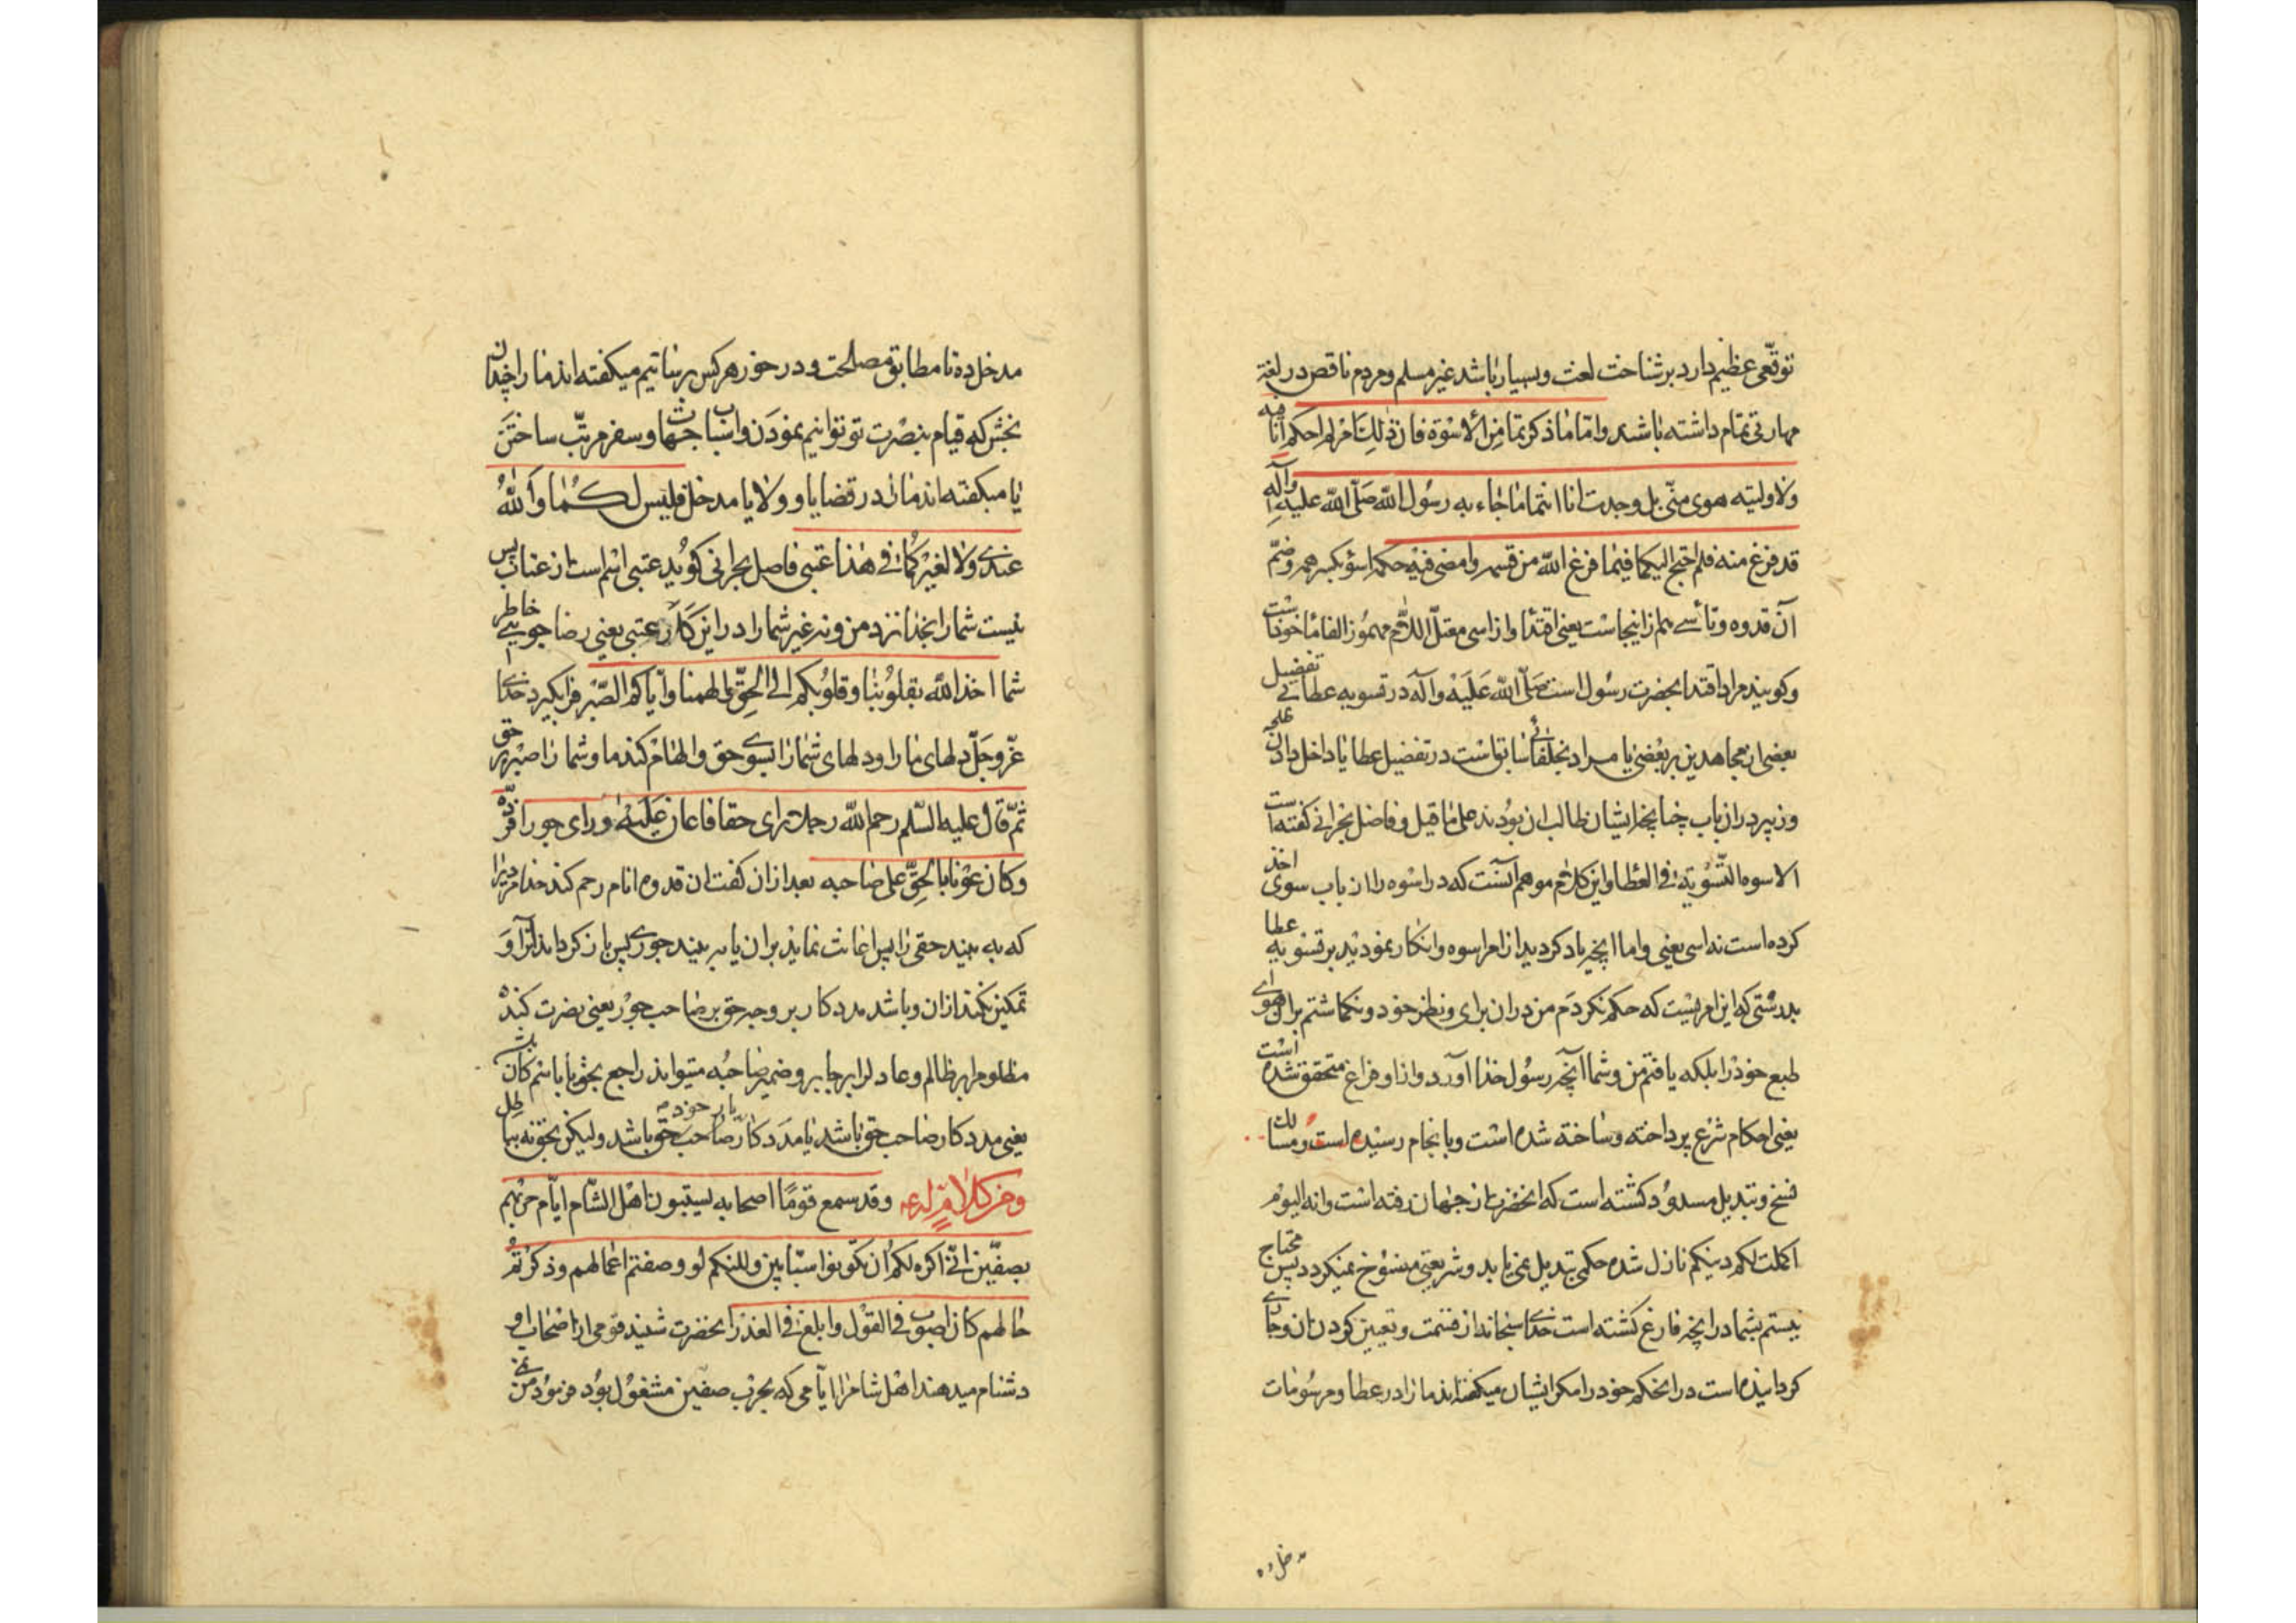 توقّعی عظیم دارد بر شناخت لغت و بسیار باشد غیر مسلم و مردم ناقص در لغة
مهارتی تمام داشته باشند و اما ما ذکرتما من الاسوة فان ذلك امر لم احکم انا فیه
ولا ولیته هوی منّی بل وجدت انا و انتما ما جاء به رسول الله صلّی الله علیه وآله
قد فرغ منه فلم احتج الیکما فیما فرغ الله من قسمه وامضی فیه حکمه اسوه بکسر همزه و ضمّ
آن قدوه و تأسی هم از اینجاست یعنی اقتدا و از اسی معتلّ اللام مهموز الفا مأخوذاست
و کویند مراد اقتدا بحضرت رسول است صلّی الله علیه وآله در تسویه عطا بی تفضیل
بعضی از مجاهدین بر بعضی یا مراد بخلفای سابق است در تفضیل عطا یا داخل دادن علی
و زبیر در ان باب چنانچه ایشان طالب ان بودند علی ما قیل و فاضل بحرانی کفته است
الاسوه التّسویة فی العطا و این کلام موهم آنست که در اسوه را از باب سوی اخذ
کرده است نه اسی یعنی و اما انچه یاد کردید از امر اسوه و انکار نمودید بر تسویه عطا
بدرستی که این امریست که حکم نکردم من در ان برای و نظر خود و نکماشتم بران هوای
طبع خود را بلکه یافتم من و شما آنچه رسول خدا آورد و از او فراغ متحقق شده است
یعنی احکام شرع پرداخته و ساخته شده است و بانجام رسیده است و مسالك
نسخ و تبدیل مسدود کشته است که انحضرت از جهان رفته است و انه الیوم
اکملت لکم دینکم نازل شده حکمی تبدیل نمی یابد و شریعتی منسوخ نمیکردد پس محتاج
نیستم بشما در انچه فارغ کشته است خدای سبحانه از قسمت و تعیین کردن ان و جاری
کردانیده است در ان حکم خود را مکر ایشان میکفته اند ما را در عطا و مرسومات
مدخل ده
مدخل ده تا مطابق مصلحت و در خور هر کس برسانیم میکفته اند ما را چندان
بخش که قیام بنصرت تو توانیم نمودن و اسباب جهات و سفر مرتّب ساختن
یا میکفته اند ما را در قضایا و ولایا مدخل فلیس لکما والله
عندی ولا لغیرکما فی هذا عتبی فاضل بحرانی کوید عتبی اسم است از عتاب پس
نیست شما را بخدا نزد من و نه غیر شما را در این کار عتبی یعنی رضا جویی خاطر
شما اخذ الله بقلوبنا وقلوبکم الی الحقّ والهمنا وایاکم الصّبر فرا بکیرد خدای
عزّ و جلّ دلهای ما را و دلهای شما را بسوی حق و الهام کند ما و شما را صبر بر حق
ثمّ قال علیه السّلم رحم الله رجلا رای حقا فاعان علیه ورای جورا فردّه
وکان عونا بالحقّ علی صاحبه بعد از ان کفت ان قدوه انام رحم کند خدا مردیرا
که به بیند حقی را پس اعانت نماید بران یا به بیند جوری پس باز کرداند آنرا و
تمکین نکند ازان و باشد مددکار بر وجه حق بر صاحب جور یعنی نصرت کند
مظلوم را بر ظالم و عادل را بر جابر و ضمیر صاحبه میتواند راجع بحق یا باسم کان باشد
یعنی مددکار صاحب حق باشد یا مددکار صاحب خود باشد و لیکن بحق نه بباطل
ومن کلام له ع وقد سمع قومًا اصحابه یسبّون اهل الشّام ایّام حربهم
بصفّین انّی اکره لکم ان تکونوا سبّابین ولکنکم لو وصفتم اعمالهم وذکرتم
حالهم کان اصوب فی القول وابلغ فی العذر انحضرت شنید قومی از اصحاب او
دشنام میدهند اهل شام را ایّامی که بحرب صفین مشغول بود فرمود من